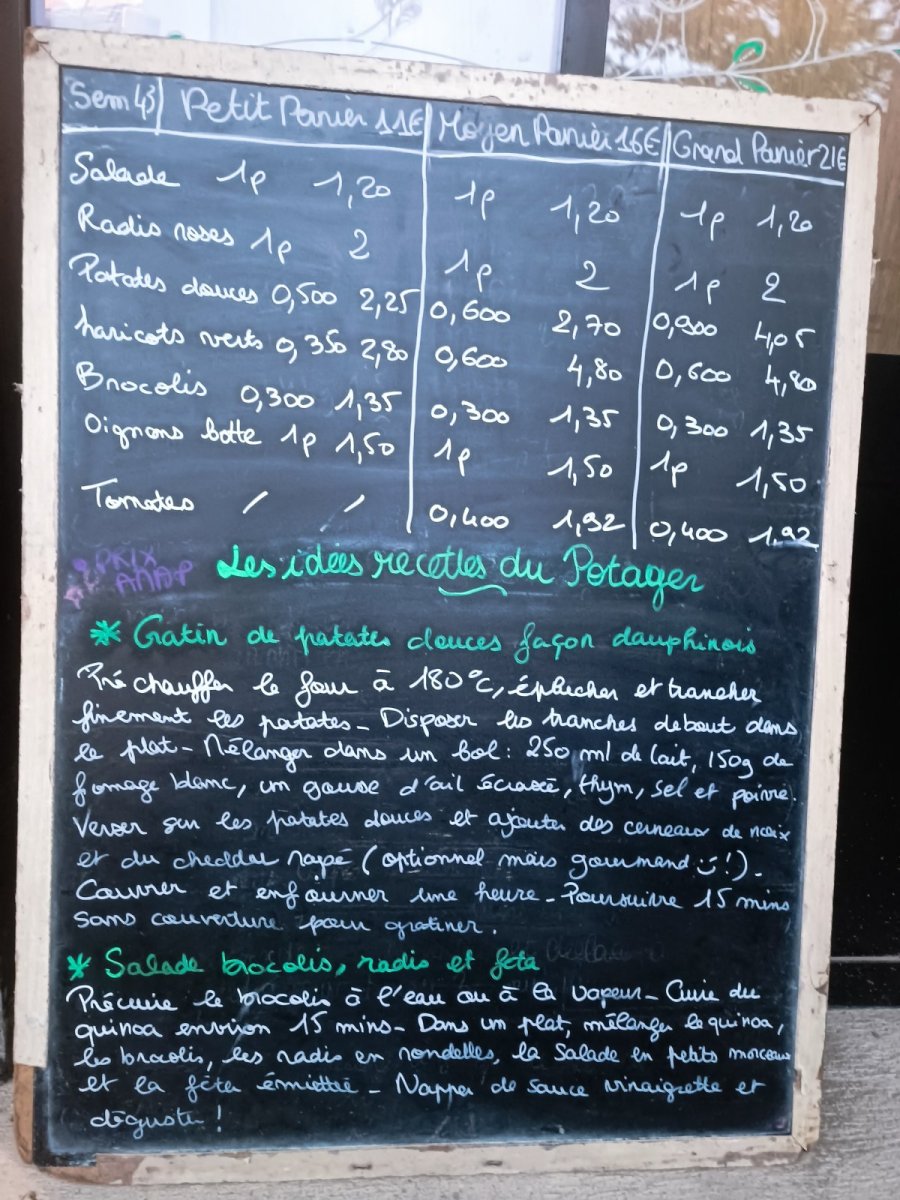 Sem 43 Petit Panier 11€ Moyen Panier 16€ Grand Panier 21€
Salade 1p 1,20 1p 1,20 1p 1,20
Radis roses 1p 2 1p 2 1p 2
Patates douces 0,500 2,25 0,600 2,70 0,900 4,05
haricots verts 0,350 2,80 0,600 4,80 0,600 4,80
Brocolis 0,300 1,35 0,300 1,35 0,300 1,35
Oignons botte 1p 1,50 1p 1,50 1p 1,50
Tomates / / 0,400 1,92 0,400 1,92
PRIX
AMAP
Les idées recettes du Potager
* Gratin de patates douces façon dauphinois
Pré chauffer le four à 180°c, éplucher et trancher
finement les patates - Disposer les tranches debout dans
le plat - Mélanger dans un bol : 250 ml de lait, 150g de
fromage blanc, un gousse d'ail écrasée, thym, sel et poivre.
Verser sur les patates douces et ajouter des cerneaux de noix
et du cheddar rapé (optionnel mais gourmand :) !) -
Couvrir et enfourner une heure - Poursuivre 15 mins
sans couverture pour gratiner.
* Salade brocolis, radis et feta
Précuire le brocolis à l'eau ou à la vapeur - Cuire du
quinoa environ 15 mins - Dans un plat, mélanger le quinoa,
les brocolis, les radis en rondelles, la salade en petits morceaux
et la féta émiettée - Napper de sauce vinaigrette et
déguster !